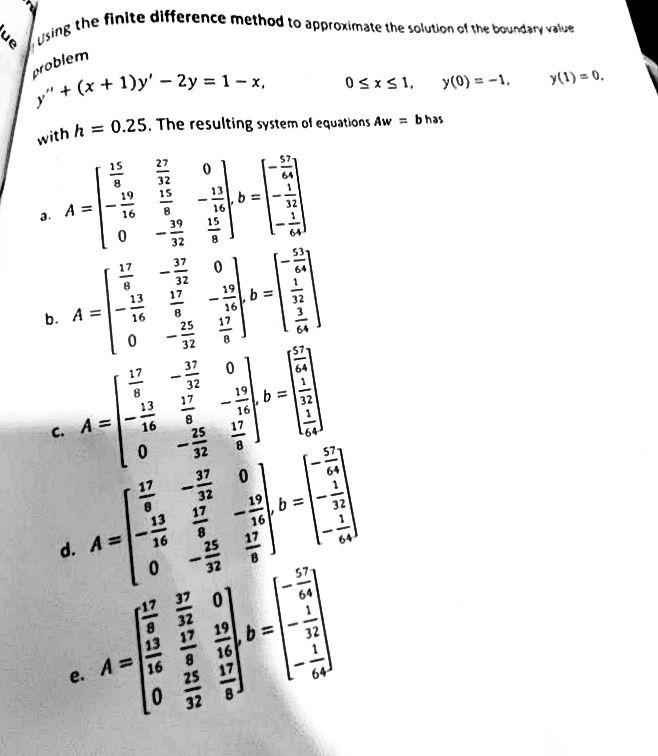 ue
Using the finite difference method to approximate the solution of the boundary value
problem
y'' + (x + 1)y' − 2y = 1 − x, 0 ≤ x ≤ 1, y(0) = −1, y(1) = 0,
with h = 0.25. The resulting system of equations Aw = b has
a. A = [15/8 27/32 0; −19/16 15/8 −13/16; 0 −39/32 15/8], b = [−57/64; −1/32; −1/64]
b. A = [17/8 −37/32 0; −13/16 17/8 −19/16; 0 −25/32 17/8], b = [−53/64; 1/32; 3/64]
c. A = [17/8 −37/32 0; −13/16 17/8 −19/16; 0 −25/32 17/8], b = [57/64; 1/32; 1/64]
d. A = [17/8 −37/32 0; −13/16 17/8 −19/16; 0 −25/32 17/8], b = [−57/64; −1/32; −1/64]
e. A = [−17/8 37/32 0; 13/16 17/8 19/16; 0 25/32 17/8], b = [−57/64; −1/32; −1/64]